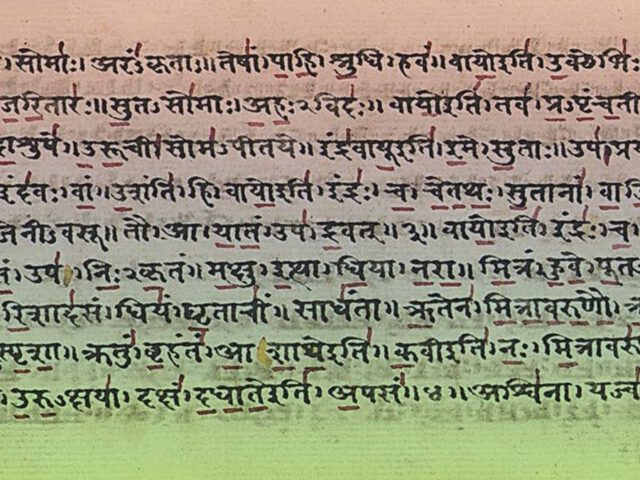 । सोमाः । अरंऽकृताः ॥ तेषां । पाहि । श्रुधि । हवं ॥ वायोइति । उक्थेभिः ।
जरितारः ॥ सुतऽसोमाः । अहःऽविदः ॥ वायोइति । तव । प्रऽपृंचती
दाशुषे ॥ उरूची । सोमऽपीतये ॥ इंद्रवायूइति । इमे । सुताः ॥ उप । प्रय
इंदवः । वां । उशंति । हि । वायोइति । इंद्रः । च । चेतथः । सुतानां । वा
जिनीऽवसू ॥ तौ । आ । यातं । उप । द्रवत् ॥ ३ ॥ वायोइति । इंद्रः । च ।
तं । उप । निःऽकृतं ॥ मक्षु । इत्था । धिया । नरा ॥ मित्रं । हुवे । पूत
रिशादसं । धियं । घृताचीं । साधंता ॥ ऋतेन । मित्रावरुणौ ।
स्पृशा ॥ क्रतुं । बृहंतं । आशाथेइति ॥ कवीइति । नः । मित्राव
। उरुऽक्षया । दक्षं । दधातेइति । अपसं ॥ ४ ॥ अश्विना । यज्व